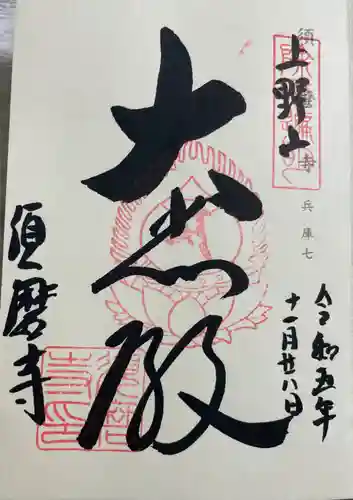 須磨寺
兵庫七
上野山
令和五年
十一月廿八日
大悲殿
須磨寺